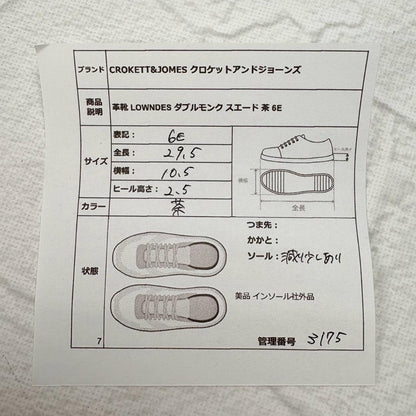 ブランド CROKETT&JOMES クロケットアンドジョーンズ
商品説明 革靴 LOWNDES ダブルモンク スエード 茶 6E
サイズ
表記: 6E
全長: 29.5
横幅: 10.5
ヒール高さ: 2.5
ヒール高さ
横幅
全長
カラー 茶
状態
つま先:
かかと:
ソール: 減り少しあり
美品 インソール社外品
7
管理番号 3175